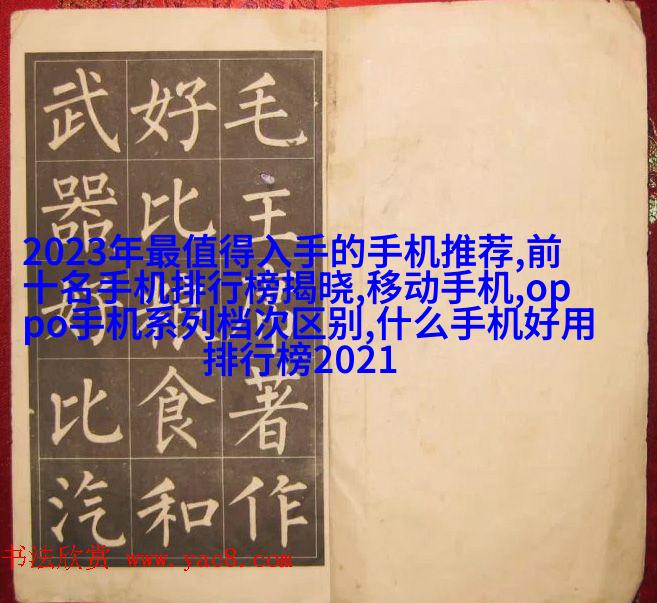 毛主著作
好比食和
武器好比汽
2023年最值得入手的手机推荐,前
十名手机排行榜揭晓,移动手机,op
po手机系列档次区别,什么手机好用
排行榜2021
书法欣赏 www.yac8.com